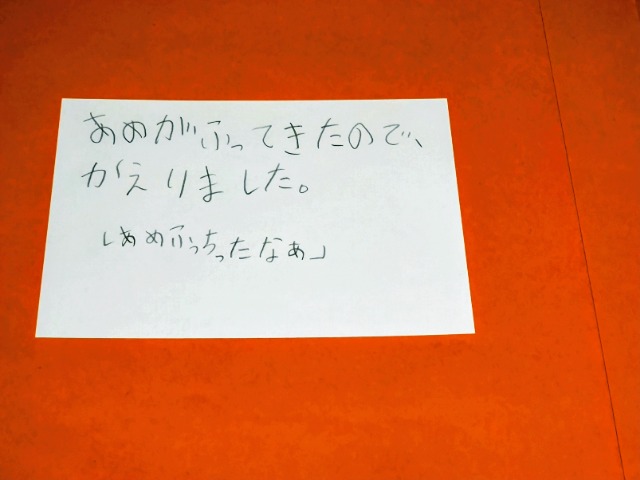 あめがふってきたので、
がえりました。
「あめふっちったなぁ」